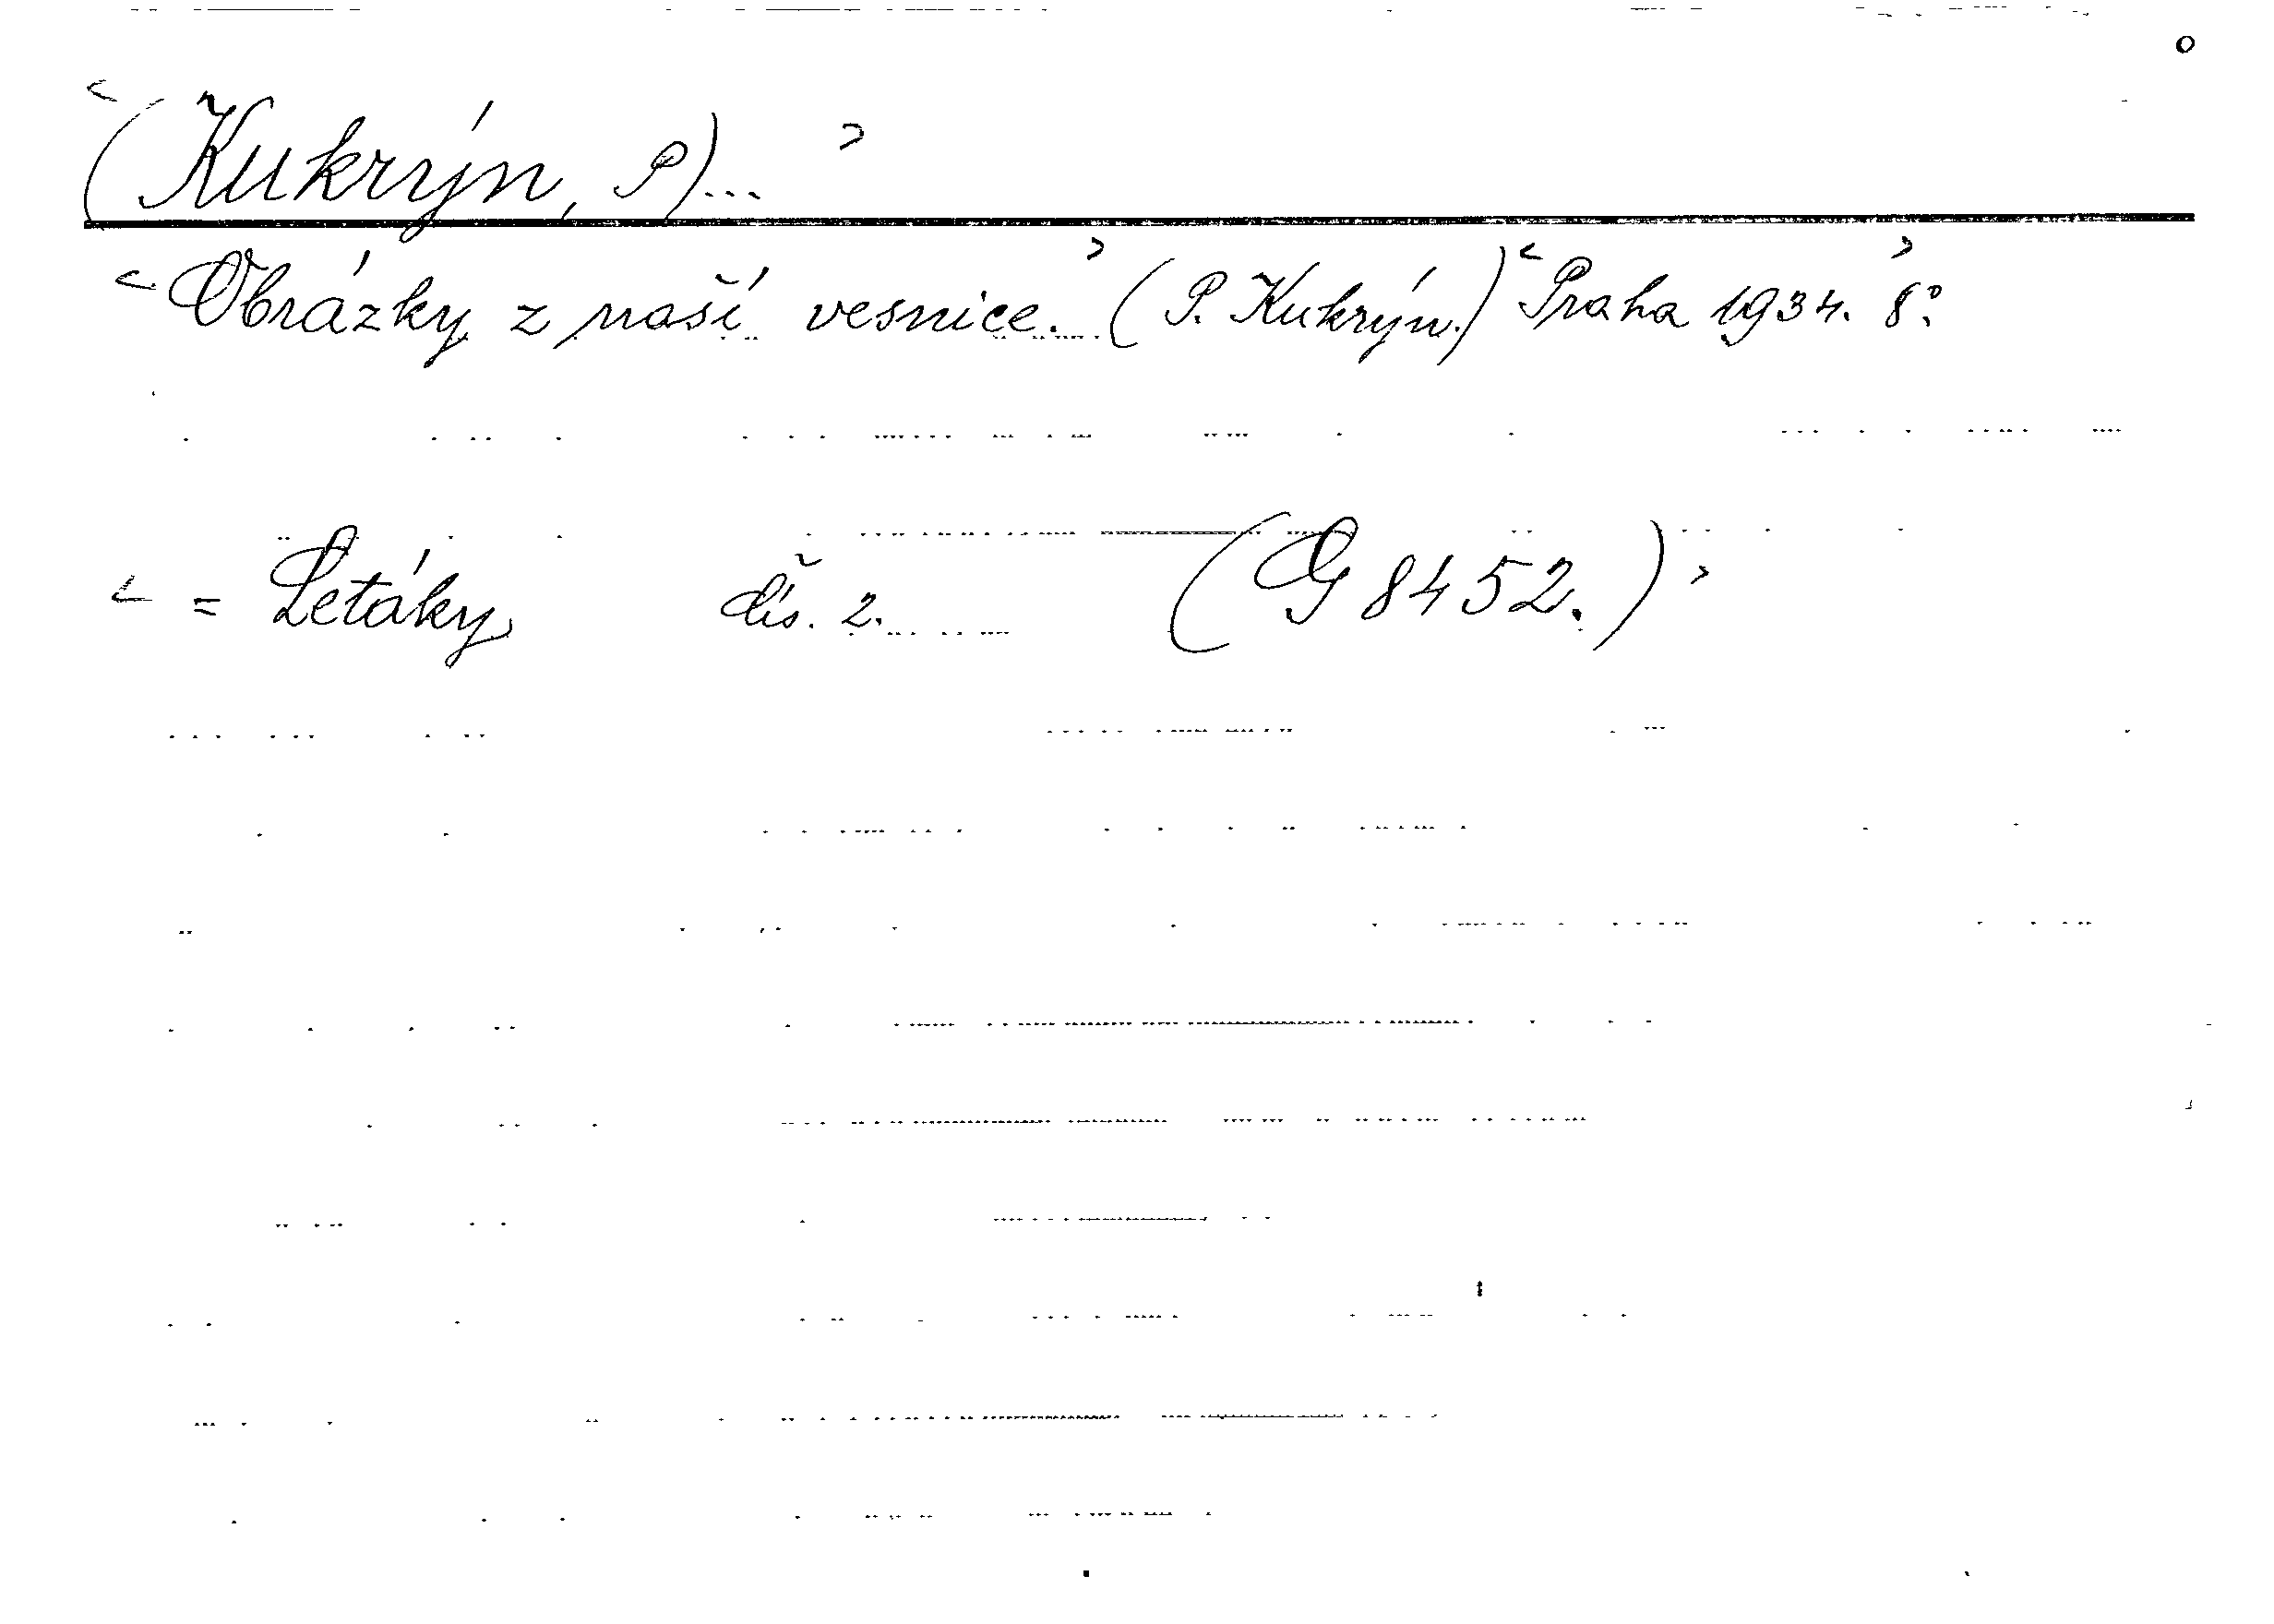 <(Kukrýn, P)...>
<Obrázky z naší vesnice.> (P. Kukrýn.) <Praha 1934. 8°.>
< = Letáky čís. 2. (G 8452.)>